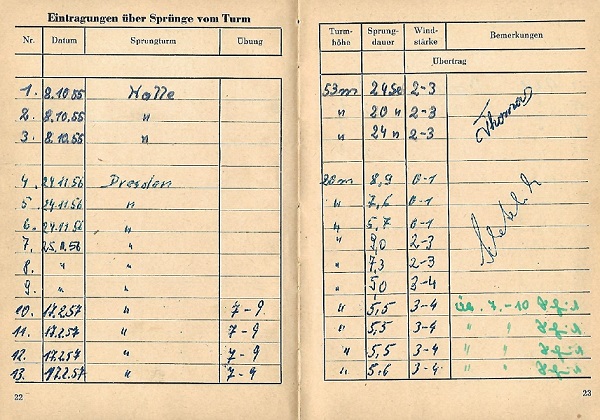 Eintragungen über Sprünge vom Turm
Nr. Datum Sprungturm Übung
1. 8.10.55 Halle
2. 8.10.55 "
3. 8.10.55 "
4. 24.11.56 Dresden
5. 24.11.56 "
6. 24.11.56 "
7. 25.11.56 "
8. " "
9. " "
10. 17.2.57 " 7-9
11. 17.2.57 " 7-9
12. 17.2.57 " 7-9
13. 17.2.57 " 7-9
22
Turm- Sprung- Wind- Bemerkungen
höhe dauer stärke
Übertrag
53m 24 Se 2-3
" 20 " 2-3
" 24 " 2-3
20m 8,9 0-1
" 7,6 0-1
" 5,7 0-1
" 9,0 2-3
" 7,3 2-3
" 5,0 3-4
" 5,5 3-4 7.-10
" 5,5 3-4 " "
" 5,5 3-4 " "
" 5,6 3-4 " "
23